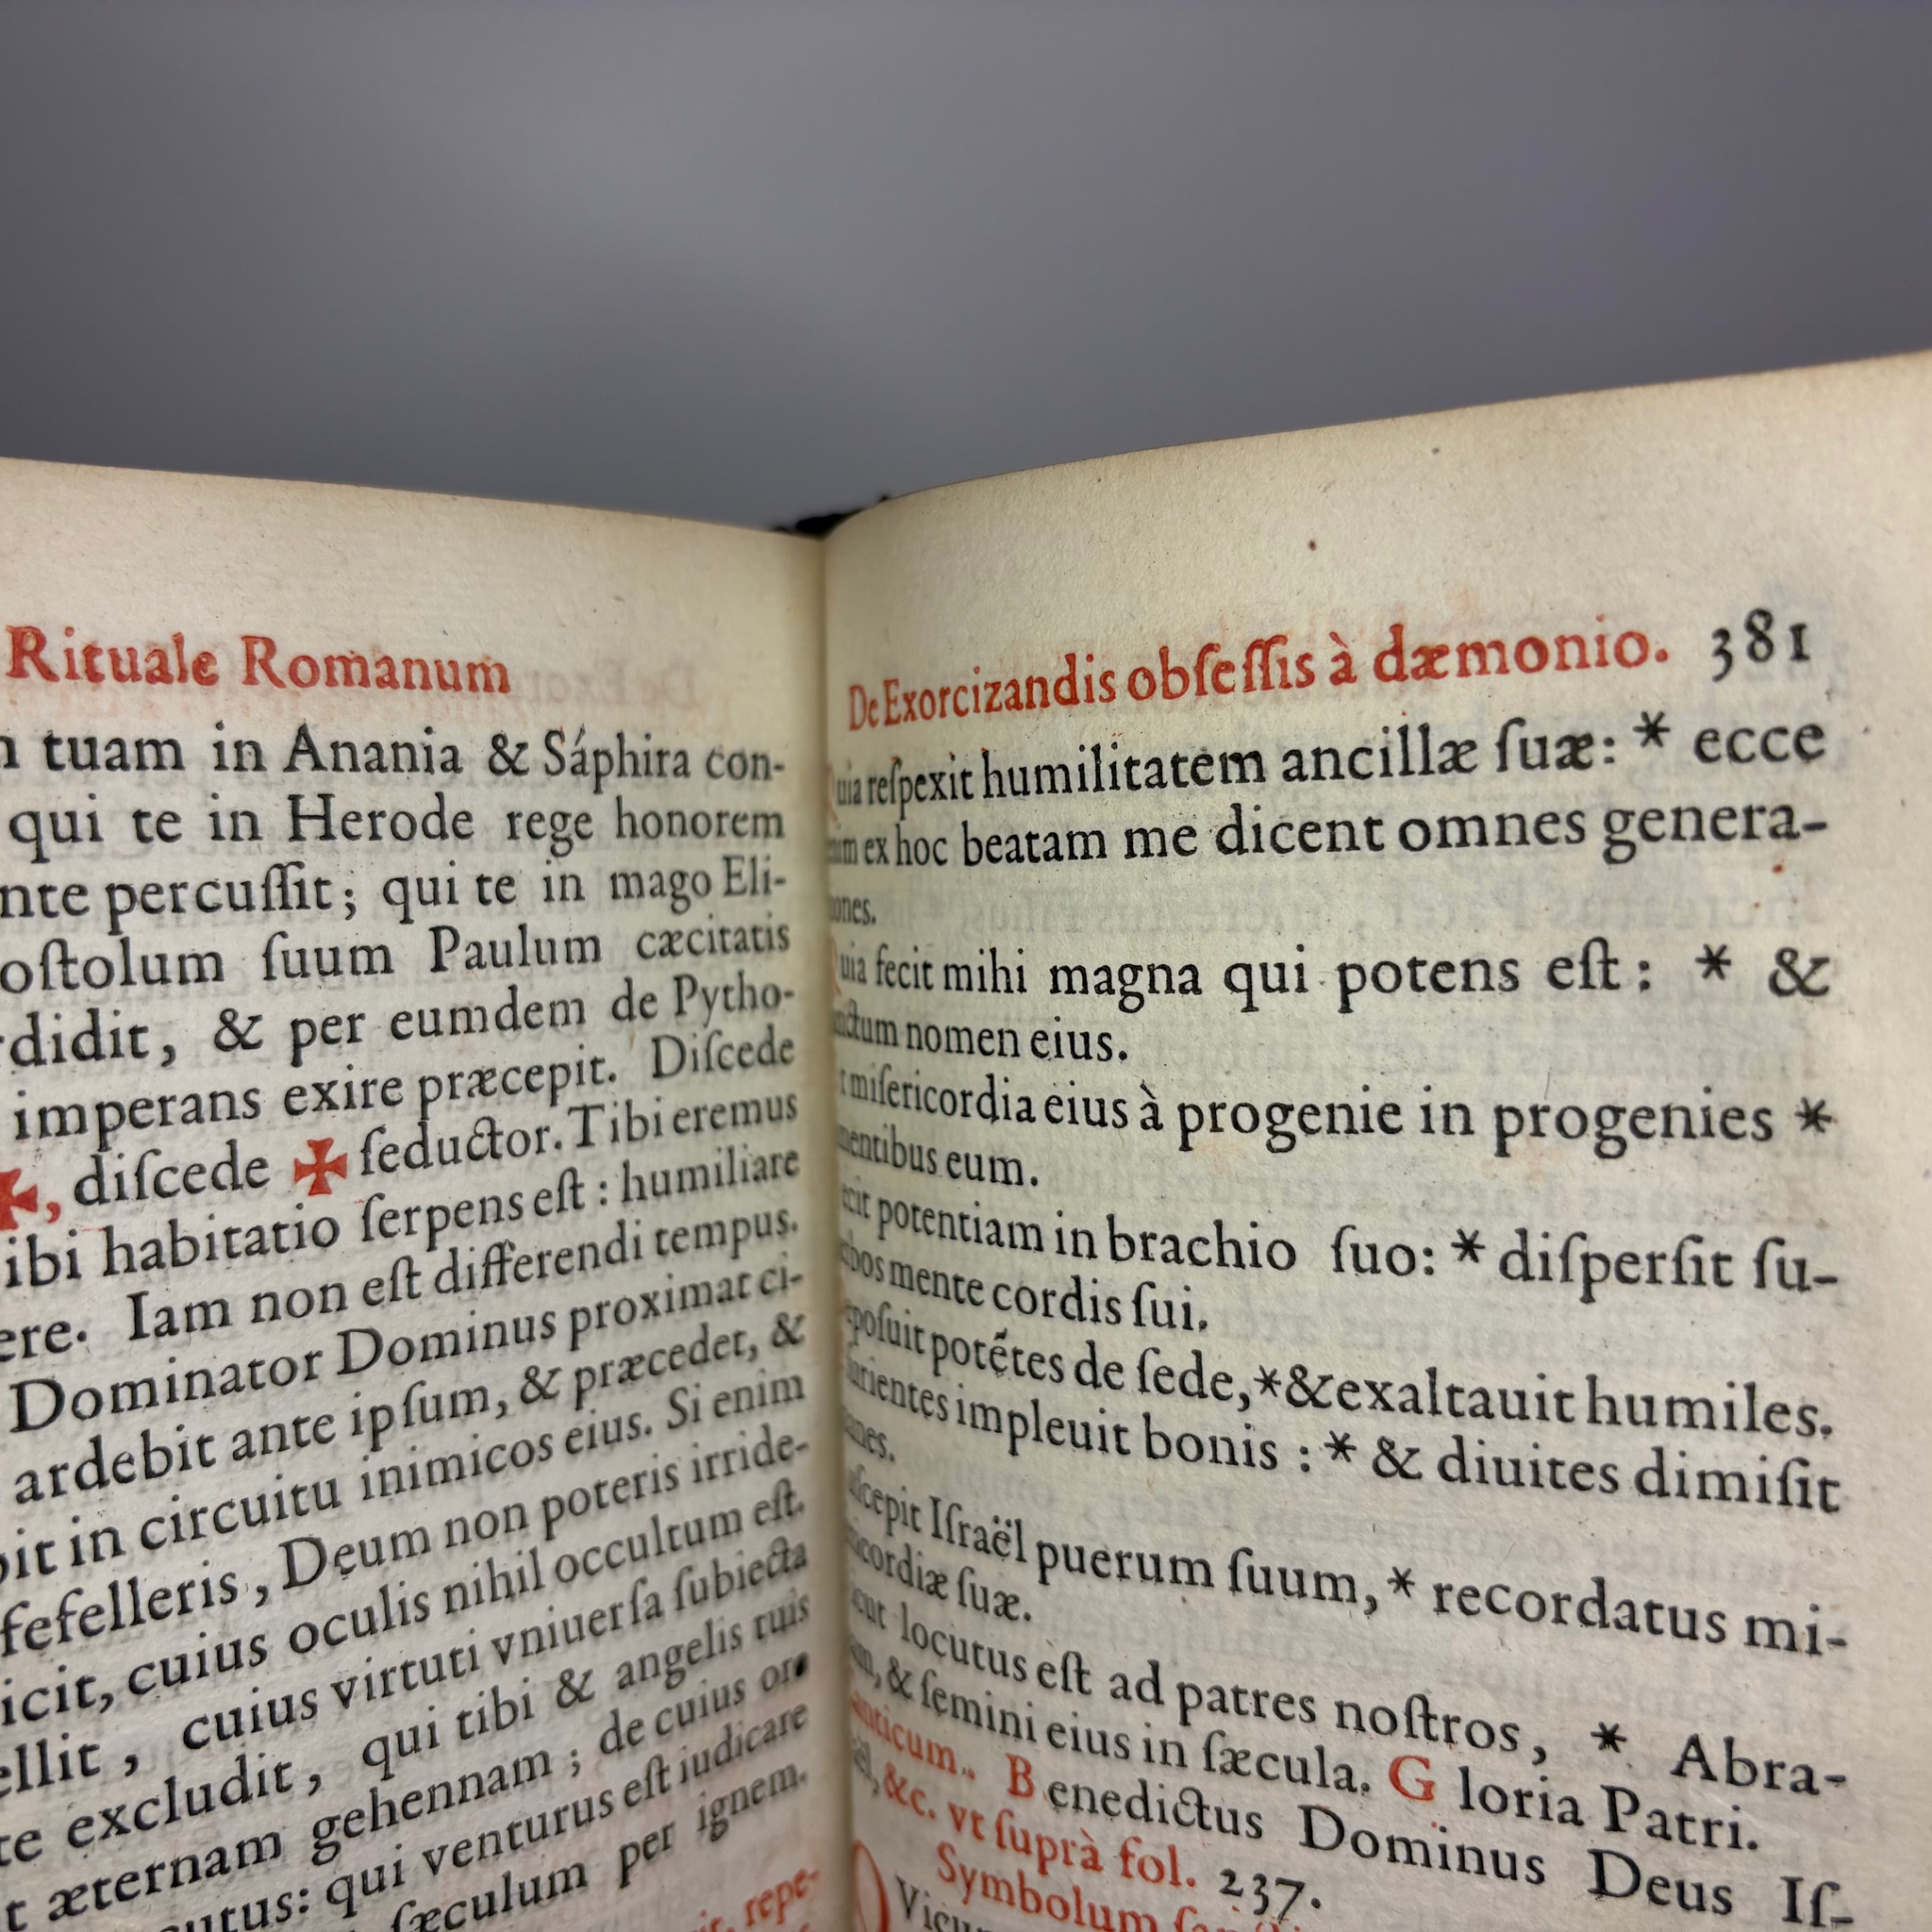 Rituale Romanum
tuam in Anania & Sáphira con-
qui te in Herode rege honorem
percuſſit; qui te in mago Eli-
ſuum Paulum cæcitatis
& per eumdem de Pytho-
imperans exire præcepit. Diſcede
✠, diſcede ✠ ſeductor. Tibi eremus
habitatio ſerpens eſt : humiliare
Iam non eſt differendi tempus.
Dominator Dominus proximat ci-
ardebit ante ipſum, & præcedet, &
in circuitu inimicos eius. Si enim
fefelleris, Deum non poteris irride-
cuius oculis nihil occultum eſt.
cuius virtuti vniuerſa ſubiecta
excludit, qui tibi & angelis tuis
æternam gehennam ; de cuius ore
qui venturus eſt iudicare
ſæculum per ignem.
repe-
De Exorcizandis obſeſſis à dæmonio. 381
reſpexit humilitatem ancillæ ſuæ: * ecce
ex hoc beatam me dicent omnes genera-
ones.
fecit mihi magna qui potens eſt : * &
nomen eius.
miſericordia eius à progenie in progenies *
eum.
potentiam in brachio ſuo: * diſperſit ſu-
mente cordis ſui.
potẽtes de ſede, * & exaltauit humiles.
impleuit bonis : * & diuites dimiſit
Iſraël puerum ſuum, * recordatus mi-
ſuæ.
locutus eſt ad patres noſtros, * Abra-
& ſemini eius in ſæcula. Gloria Patri.
Benedictus Dominus Deus Iſ-
&c. vt ſuprà fol. 237.
Symbolum